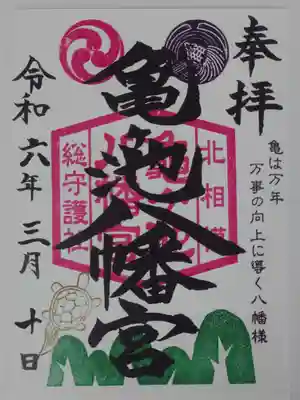 奉拝
亀は万年
万事の向上に導く八幡様
亀池八幡宮
北相模
総守護社
令和六年三月十日